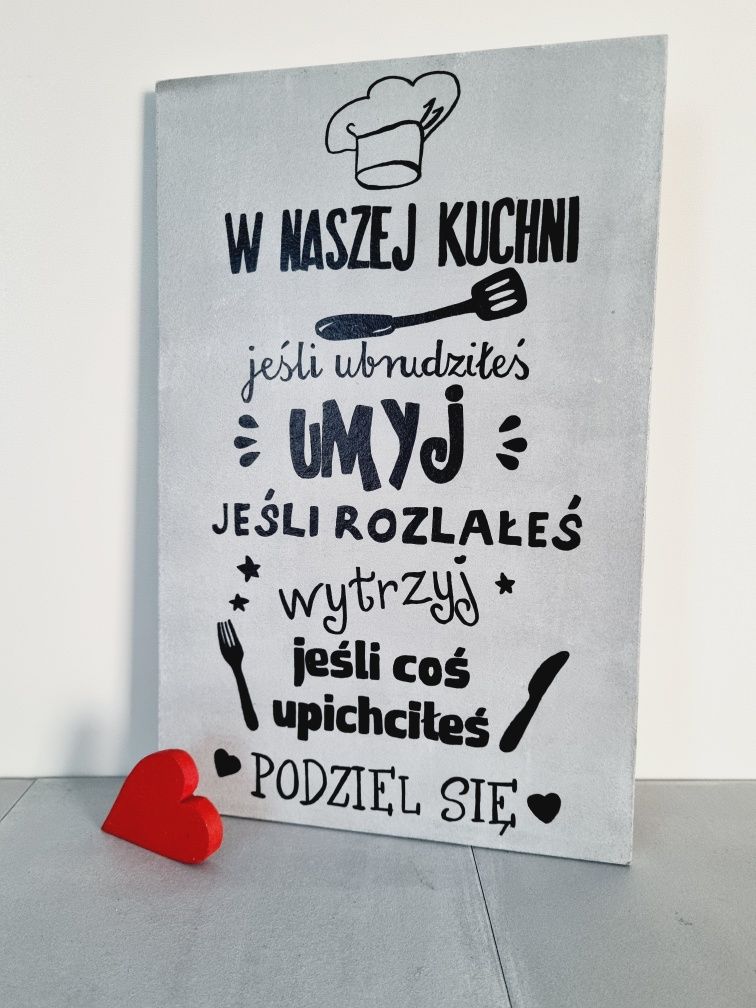 W NASZEJ KUCHNI
jeśli ubrudziłeś
UMYJ
JEŚLI ROZLAŁEŚ
wytrzyj
jeśli coś
upichciłeś
PODZIEL SIĘ